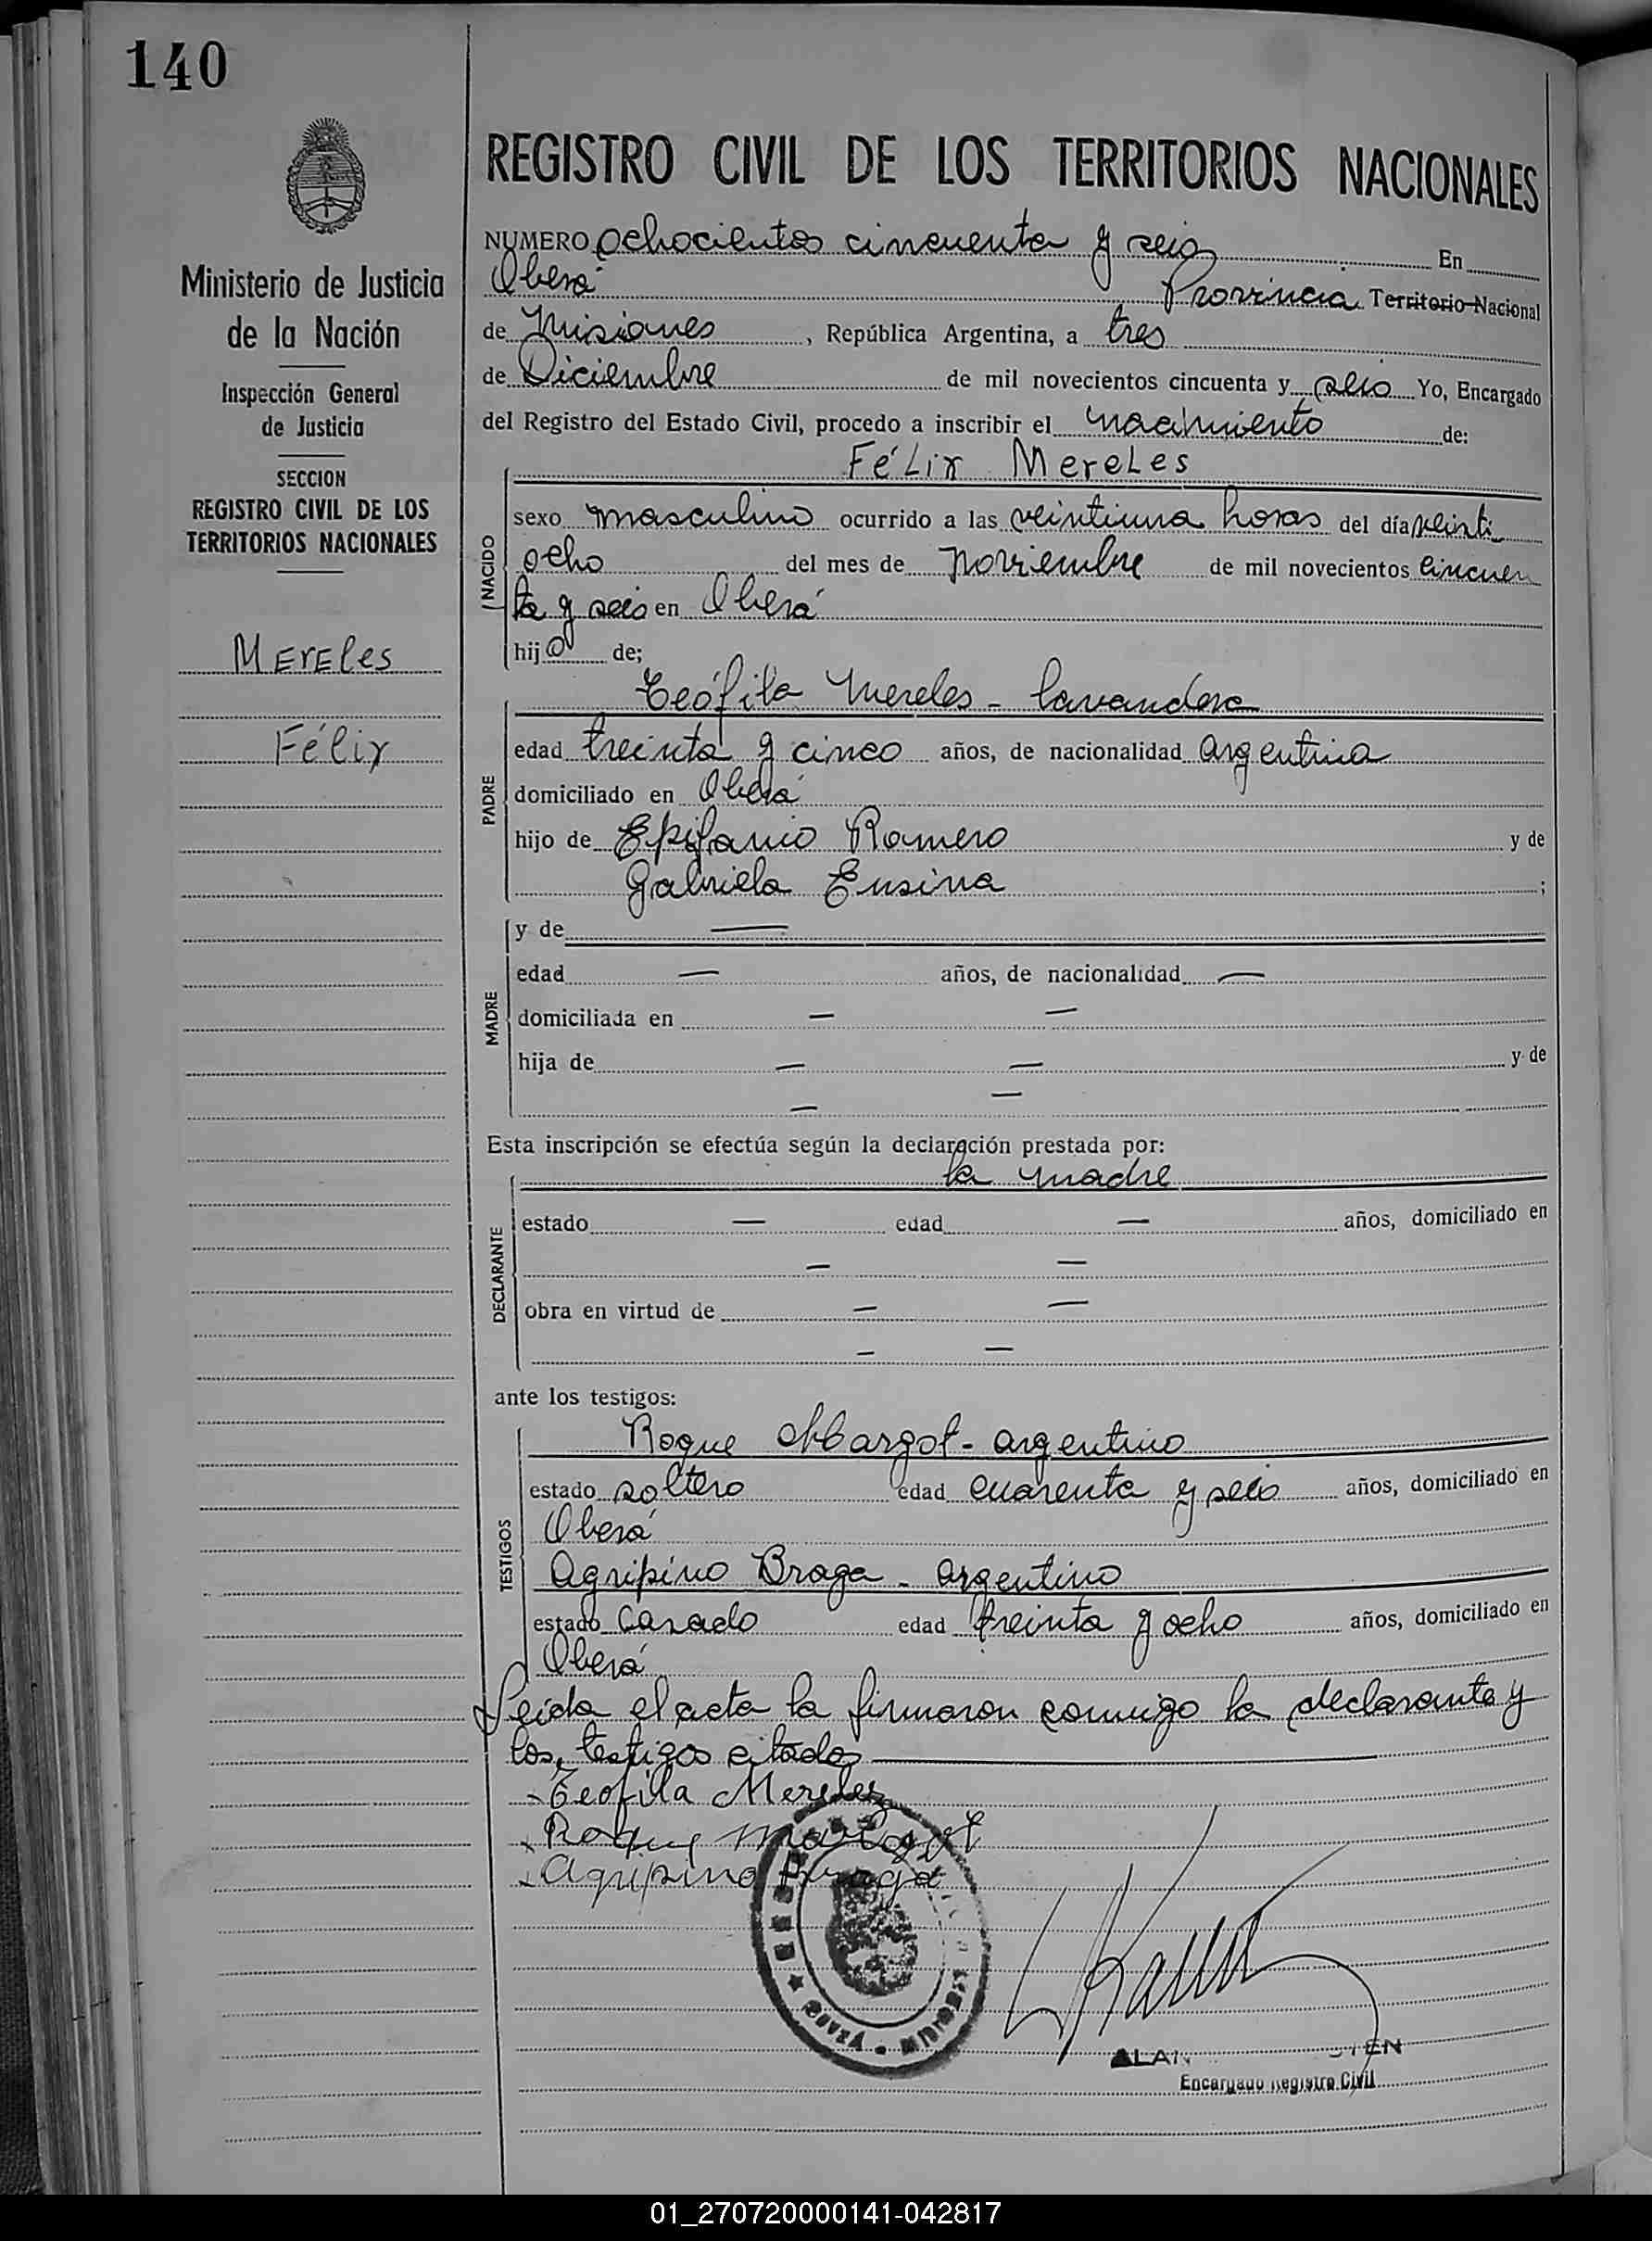 140
REGISTRO CIVIL DE LOS TERRITORIOS NACIONALES
Ministerio de Justicia
de la Nación
Inspección General
de Justicia
SECCION
REGISTRO CIVIL DE LOS
TERRITORIOS NACIONALES
Mereles
Félix
NUMERO ochocientos cincuenta y seis En
Oberá Provincia Territorio Nacional
de Misiones, República Argentina, a tres
de Diciembre de mil novecientos cincuenta y seis Yo, Encargado
del Registro del Estado Civil, procedo a inscribir el nacimiento de:
Félix Mereles
NACIDO
sexo masculino ocurrido a las veintiuna horas del día veinti
ocho del mes de noviembre de mil novecientos cincuen
ta y seis en Oberá
hijo de;
Teófila Mereles - lavandera
PADRE
edad treinta y cinco años, de nacionalidad argentina
domiciliado en Oberá
hijo de Epifanio Romero y de
Gabriela Ensina ;
MADRE
y de —
edad — años, de nacionalidad —
domiciliada en — —
hija de — — y de
— —
Esta inscripción se efectúa según la declaración prestada por:
la madre
DECLARANTE
estado — edad — años, domiciliado en
— —
obra en virtud de — —
— —
ante los testigos:
TESTIGOS
Roque Margot - argentino
estado soltero edad cuarenta y seis años, domiciliado en
Oberá
Agripino Braga - argentino
estado casado edad treinta y ocho años, domiciliado en
Oberá
Leída el acta la firmaron conmigo la declarante y
los testigos citados
Teofila Mereles
Roque Margot
Agripino Braga
Encargado Registro Civil
01_270720000141-042817